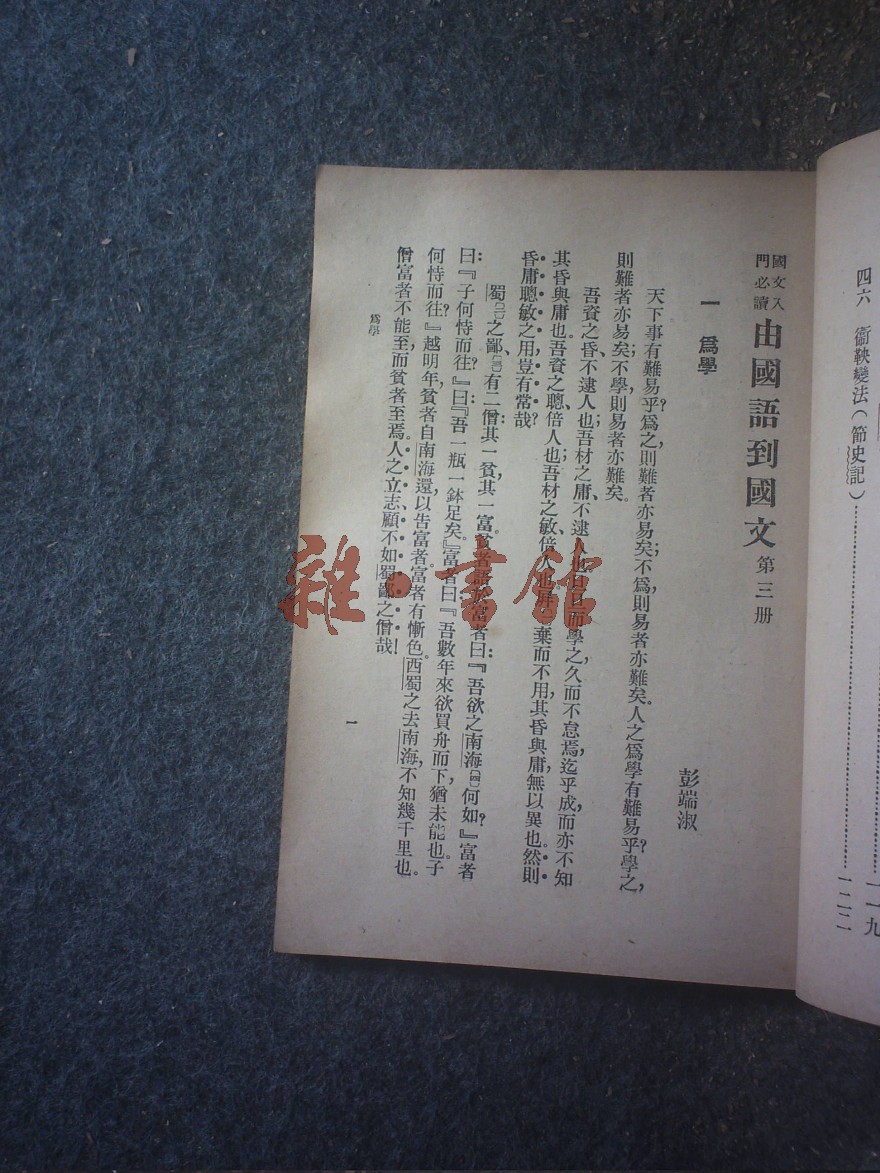 四六　衞鞅變法（節史記）……一二二
一一九
國文入門必讀 由國語到國文 第三册
一　爲學
彭端淑
天下事有難易乎？爲之，則難者亦易矣；不爲，則易者亦難矣。人之爲學有難易乎？學之，
則難者亦易矣；不學，則易者亦難矣。
吾資之昏，不逮人也；吾材之庸，不逮人也；旦旦而學之，久而不怠焉，迄乎成，而亦不知
其昏與庸也。吾資之聰，倍人也；吾材之敏，倍人也；屏棄而不用，其昏與庸無以異也。然則
昏庸聰敏之用，豈有常哉？
蜀〔二〕之鄙〔三〕，有二僧：其一貧，其一富。貧者語於富者曰：『吾欲之南海〔四〕，何如？』富者
曰：『子何恃而往？』曰：『吾一瓶一鉢足矣。』富者曰：『吾數年來欲買舟而下，猶未能也。子
何恃而往？』越明年，貧者自南海還，以告富者，富者有慚色。西蜀之去南海，不知幾千里也。
僧富者不能至，而貧者至焉。人之立志，顧不如蜀鄙之僧哉！
爲學
一
雜·書館